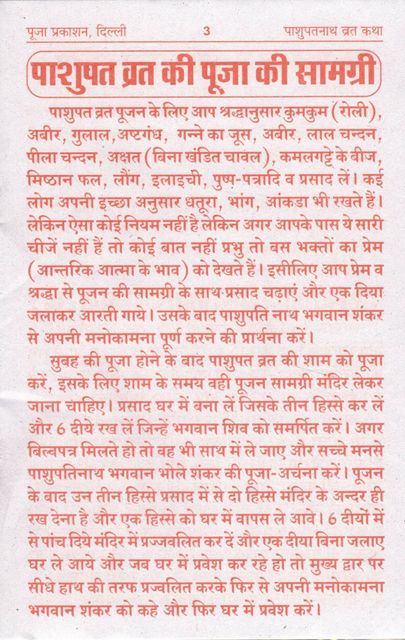 पूजा प्रकाशन, दिल्ली 3 पाशुपतनाथ व्रत कथा
पाशुपत व्रत की पूजा की सामग्री
पाशुपत व्रत पूजन के लिए आप श्रद्धानुसार कुमकुम (रोली),
अबीर, गुलाल,अष्टगंध, गन्ने का जूस, अबीर, लाल चन्दन,
पीला चन्दन, अक्षत (बिना खंडित चावल), कमलगट्टे के बीज,
मिष्ठान फल, लौंग, इलाइची, पुष्प-पत्रादि व प्रसाद लें। कई
लोग अपनी इच्छा अनुसार धतूरा, भांग, आंकडा भी रखते हैं।
लेकिन ऐसा कोई नियम नहीं है लेकिन अगर आपके पास ये सारी
चीजें नहीं हैं तो कोई बात नहीं प्रभु तो बस भक्तों का प्रेम
(आन्तरिक आत्मा के भाव) को देखते हैं। इसीलिए आप प्रेम व
श्रद्धा से पूजन की सामग्री के साथ-प्रसाद चढ़ाएं और एक दिया
जलाकर आरती गाये। उसके बाद पाशुपति नाथ भगवान शंकर
से अपनी मनोकामना पूर्ण करने की प्रार्थना करें।
सुबह की पूजा होने के बाद पाशुपत व्रत की शाम को पूजा
करें, इसके लिए शाम के समय वही पूजन सामग्री मंदिर लेकर
जाना चाहिए। प्रसाद घर में बना लें जिसके तीन हिस्से कर लें
और 6 दीये रख लें जिन्हें भगवान शिव को समर्पित करें। अगर
बिल्वपत्र मिलते हो तो वह भी साथ में ले जाए और सच्चे मनसे
पाशुपतिनाथ भगवान भोले शंकर की पूजा-अर्चना करें। पूजन
के बाद उन तीन हिस्से प्रसाद में से दो हिस्से मंदिर के अन्दर ही
रख देना है और एक हिस्से को घर में वापस ले आवे। 6 दीयों में
से पांच दिये मंदिर में प्रज्जवलित कर दें और एक दीया बिना जलाए
घर ले आये और जब घर में प्रवेश कर रहे हो तो मुख्य द्वार पर
सीधे हाथ की तरफ प्रज्वलित करके फिर से अपनी मनोकामना
भगवान शंकर को कहे और फिर घर में प्रवेश करें।